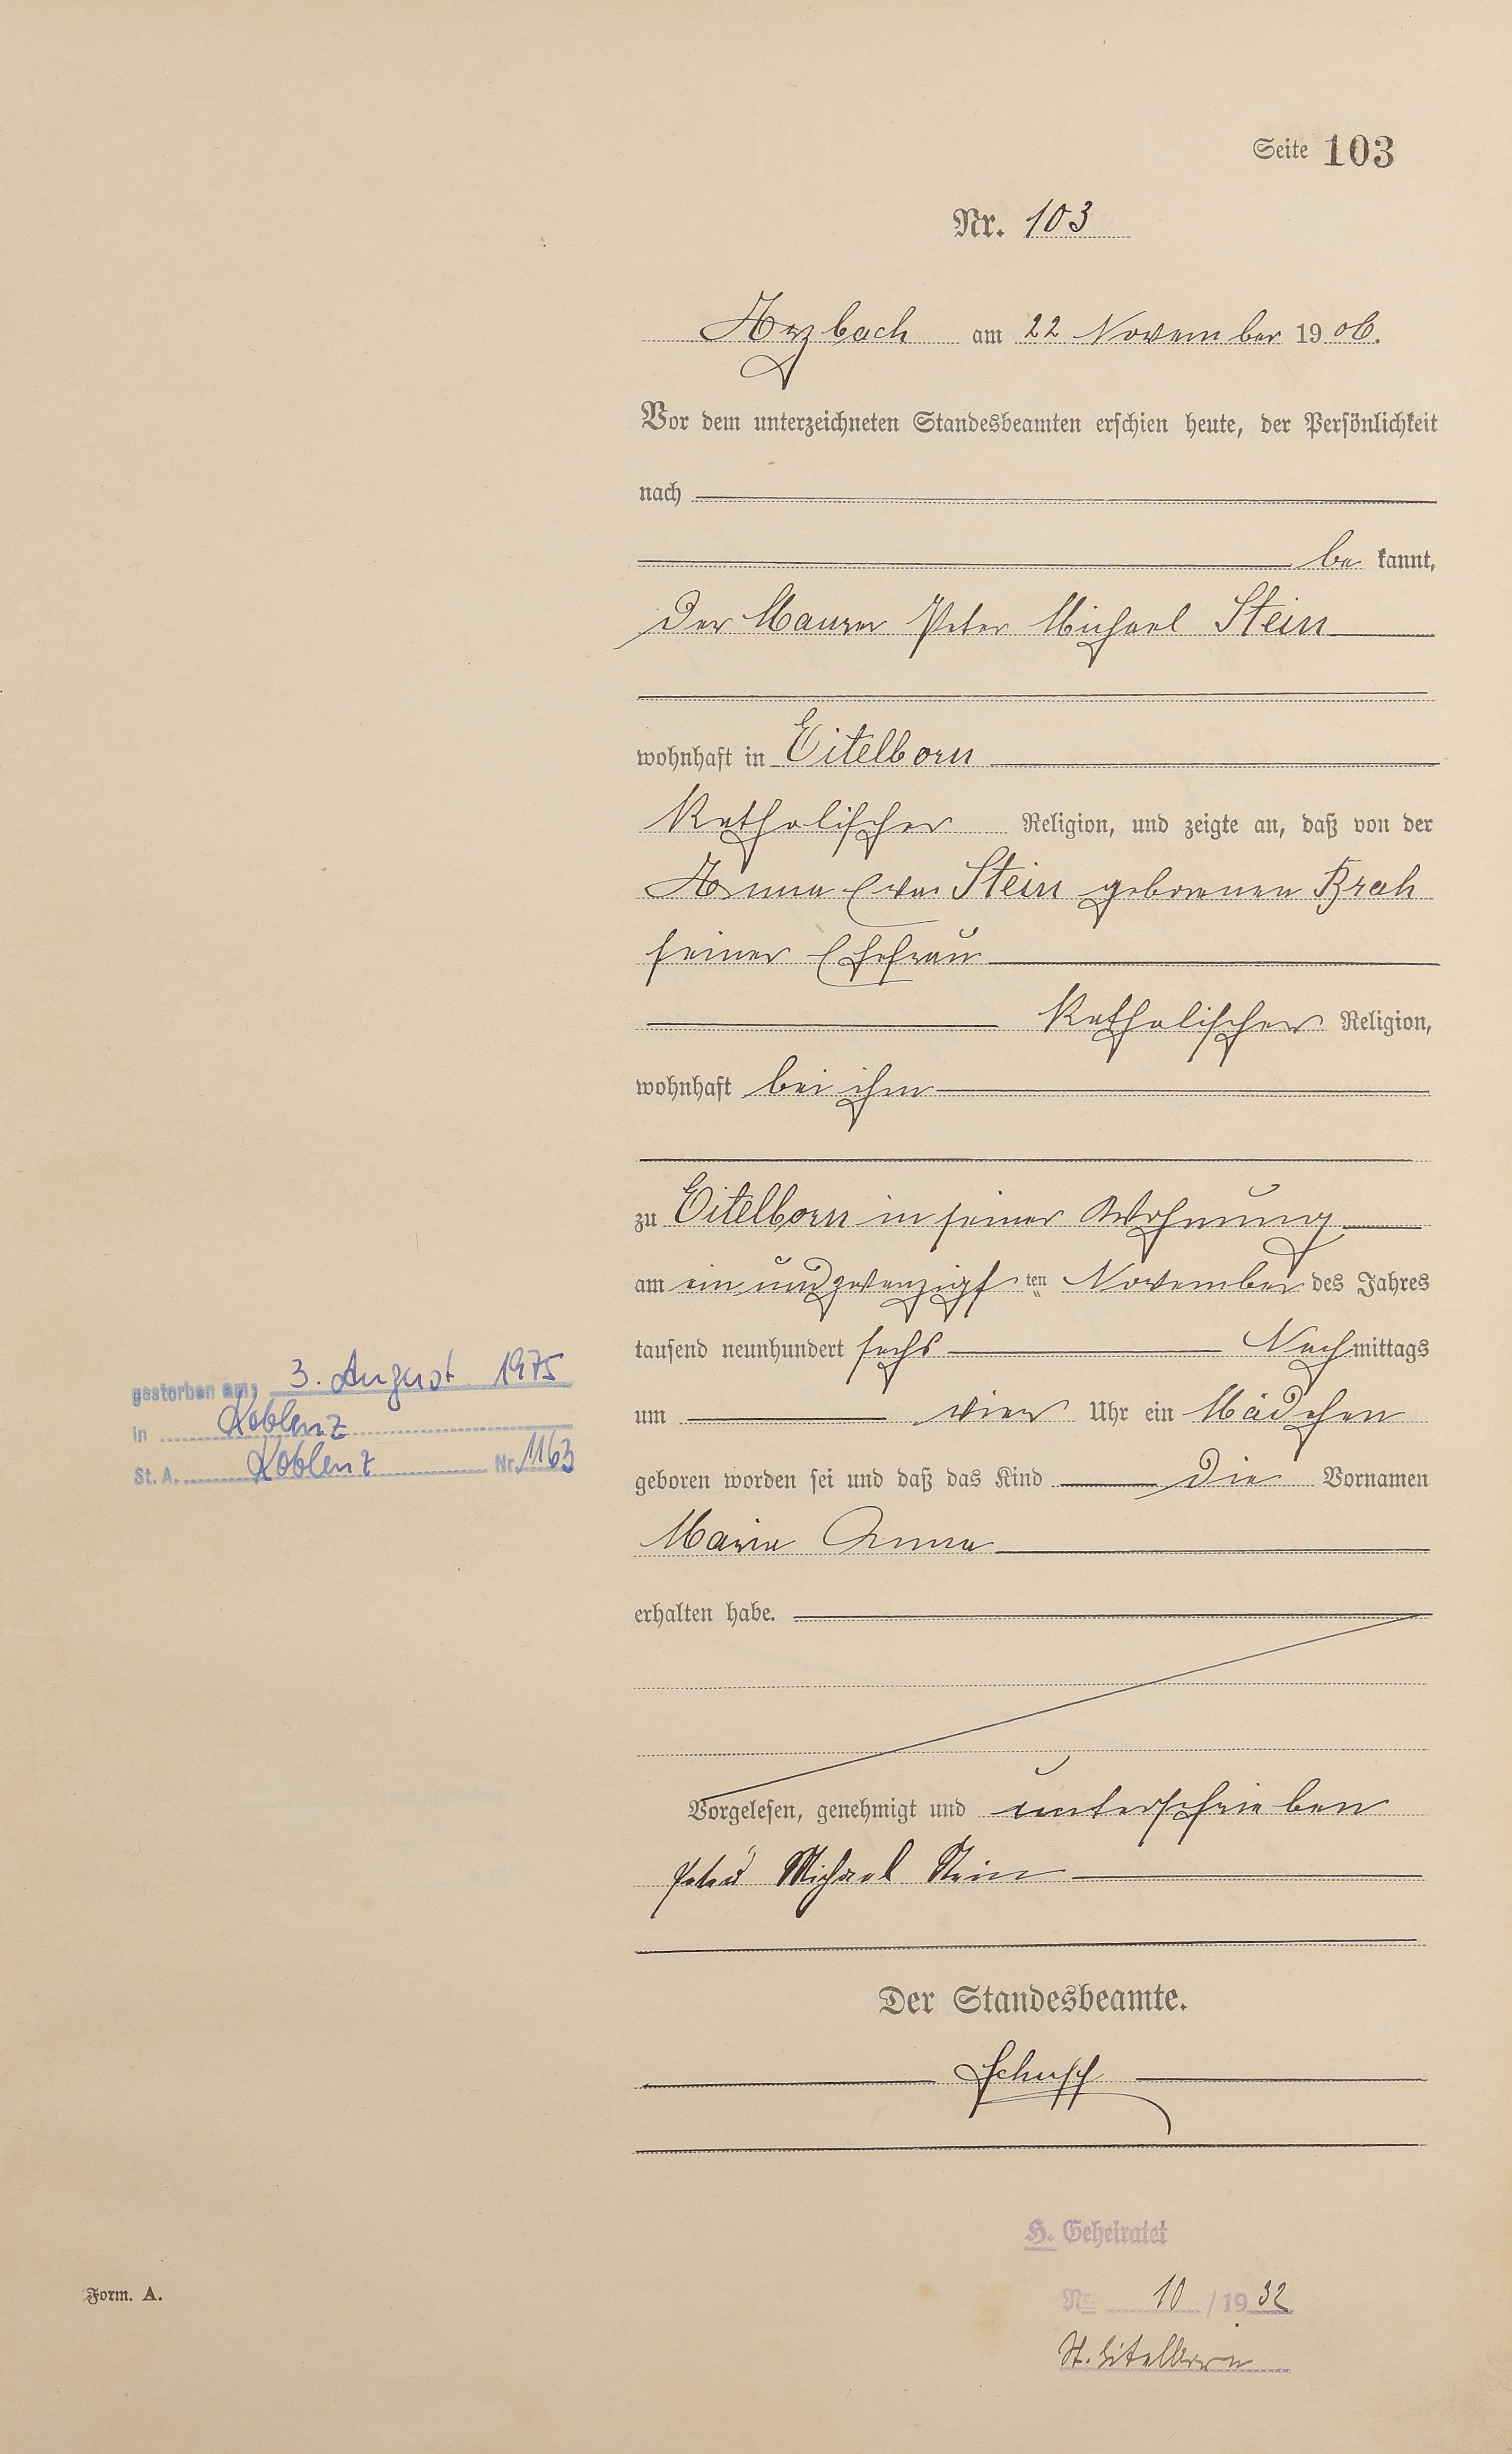 Seite 103
Nr. 103
Arzbach am 22 November 1906.
Vor dem unterzeichneten Standesbeamten erschien heute, der Persönlichkeit
nach
be kannt,
der Maurer Peter Michael Stein
wohnhaft in Eitelborn
Katholischer Religion, und zeigte an, daß von der
Anna Eva Stein geborenen Brah
seiner Ehefrau
Katholischer Religion,
wohnhaft bei ihm
zu Eitelborn in seiner Wohnung
am ein und zwanzigsten November des Jahres
tausend neunhundert sechs Nachmittags
um vier Uhr ein Mädchen
geboren worden sei und daß das Kind die Vornamen
Maria Anna
erhalten habe.
Vorgelesen, genehmigt und unterschrieben
Peter Michael Stein
Der Standesbeamte.
gestorben am: 3. August 1975
in Koblenz
St. A. Koblenz Nr. 1163
H. Geheiratet
Nr. 10 / 1932
St. Eitelborn
Form. A.